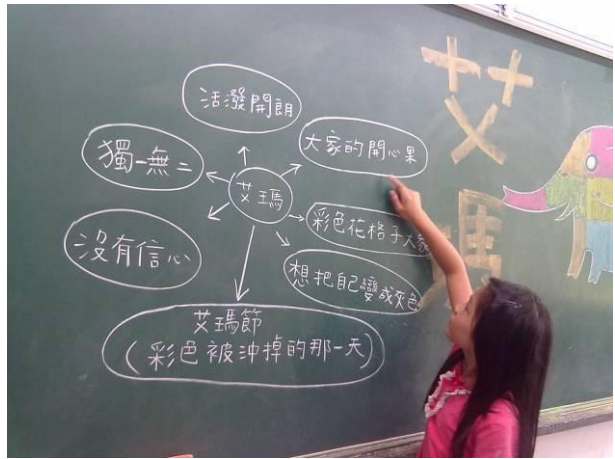 活潑開朗
大家的開心果
獨一無二
艾瑪
彩色花格子大象
沒有信心
想把自己變成灰色
艾瑪節
(彩色被沖掉的那一天)
艾瑪